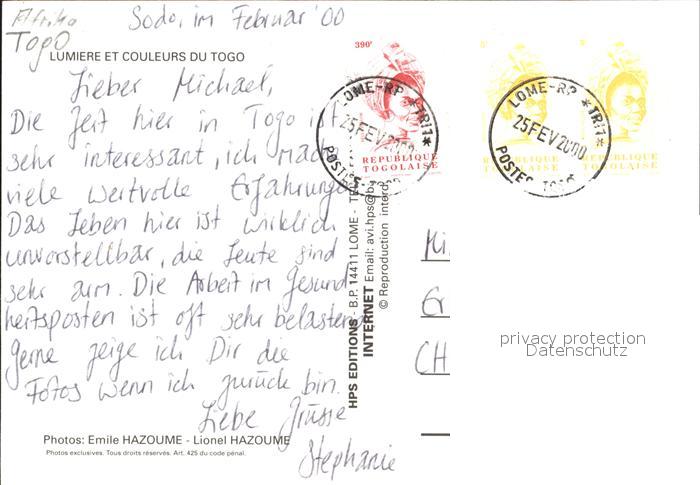 Afrika
Togo
Sodo, im Februar '00
LUMIERE ET COULEURS DU TOGO
Lieber Michael,
Die Zeit hier in Togo ist
sehr interessant, ich mache
viele wertvolle Erfahrungen
Das Leben hier ist wirklich
unvorstellbar, die Leute sind
sehr arm. Die Arbeit im Gesund
heitsposten ist oft sehr belastend
Gerne zeige ich Dir die
Fotos wenn ich zurück bin.
Liebe Grüsse
Stephanie
Photos: Emile HAZOUME - Lionel HAZOUME
Photos exclusives. Tous droits réservés. Art. 425 du code pénal.
HPS EDITIONS - B.P. 14411 LOME -
INTERNET Email: avi.hps@
© Reproduction interd
390F
REPUBLIQUE
TOGOLAISE
LOME-RP *TRI1*
25 FEV 2000
POSTES
REPUBLIQUE
TOGOLAISE
REPUBLIQUE
TOGOLAISE
LOME-RP *TRI1*
25 FEV 2000
POSTES TOGO
Mi
Gr
CH
privacy protection
Datenschutz